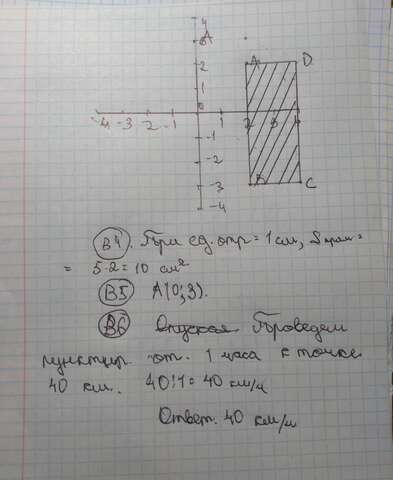 4
3 A
2 A D
1
0
-4 -3 -2 -1 1 2 3 4
-1
-2
-3 B C
-4
В4. При ед. отр = 1 см, Sпрям =
= 5·2 = 10 см²
В5 А(0;3).
В6 Проведем
пунктир от 1 часа к точке
40 км. 40:1 = 40 км/ч
Ответ. 40 км/ч